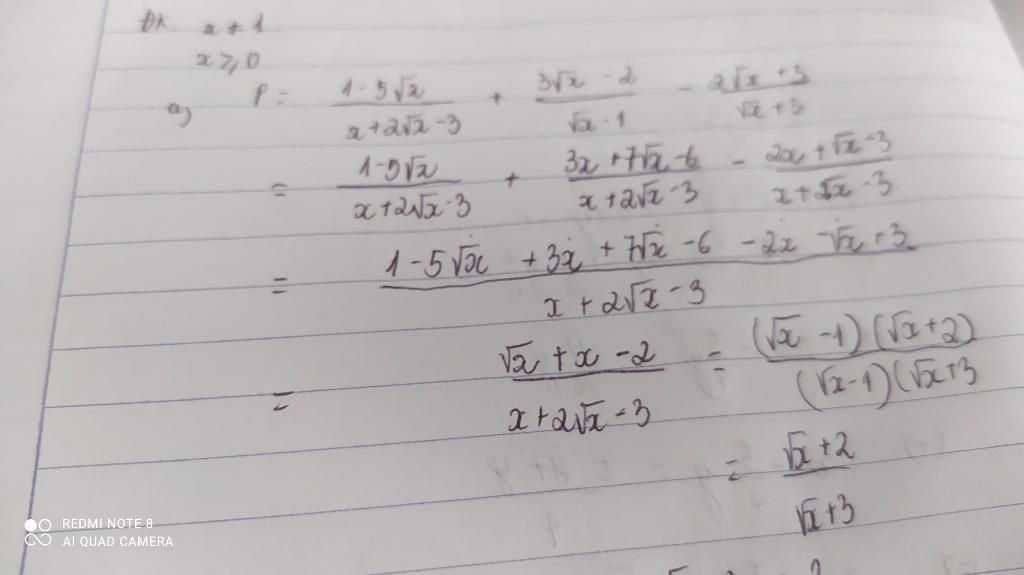 ĐK. x ≠ 1
x ≥ 0
a) P = (1-5√x)/(x+2√x-3) + (3√x-2)/(√x-1) - (2√x+3)/(√x+3)
= (1-5√x)/(x+2√x-3) + (3x+7√x-6)/(x+2√x-3) - (2x+√x-3)/(x+2√x-3)
= (1-5√x+3x+7√x-6-2x-√x+3)/(x+2√x-3)
= (√x+x-2)/(x+2√x-3) = (√x-1)(√x+2)/(√x-1)(√x+3
= (√x+2)/(√x+3)
REDMI NOTE 8
AI QUAD CAMERA